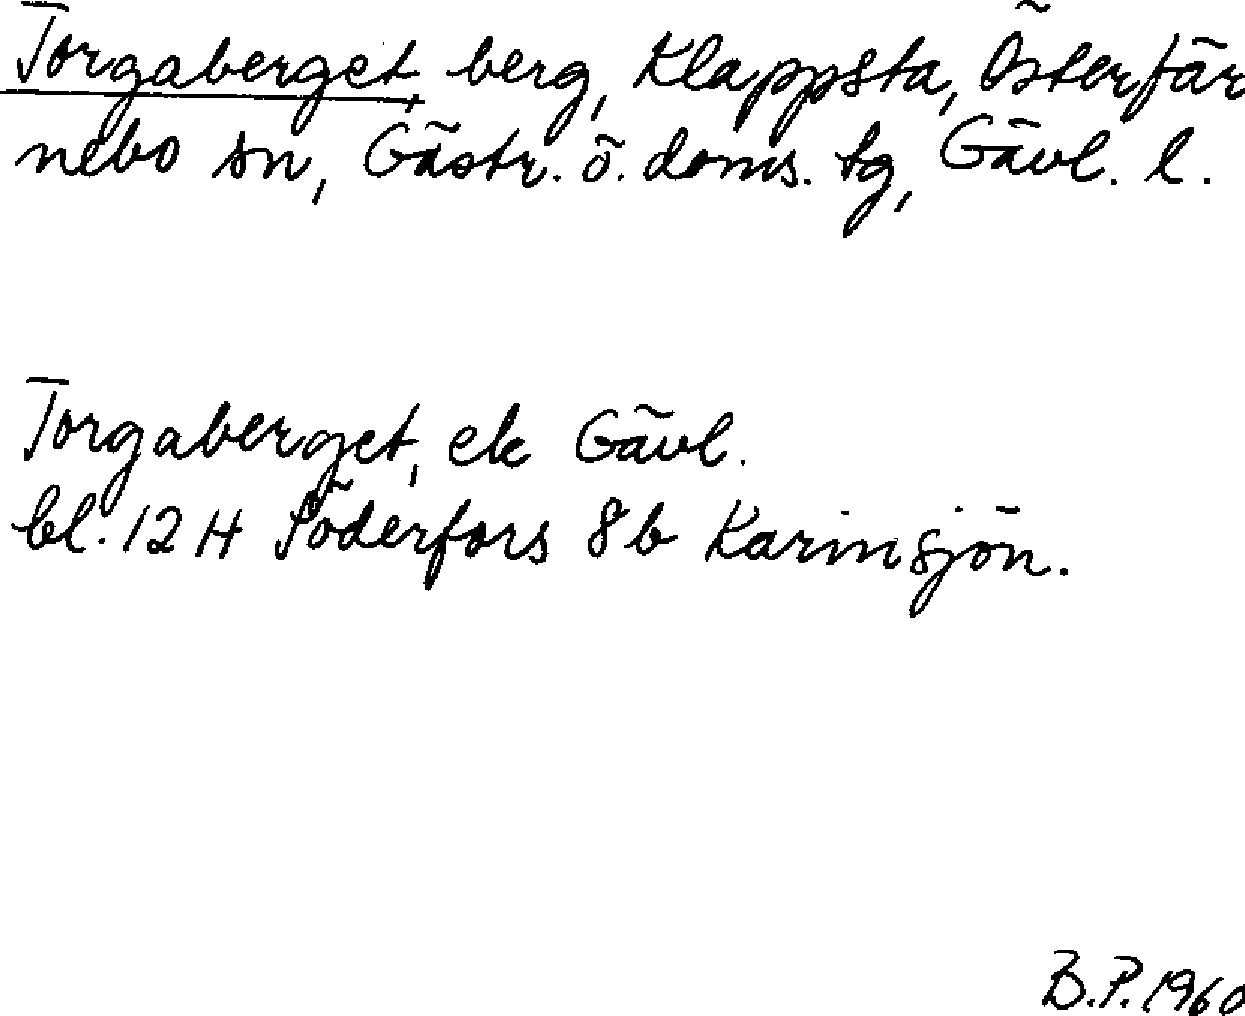 Torgaberget, berg, Klappsta, Österfär
nebo sn, Gästr. ö. doms. tg, Gävl. l.
Torgaberget, ek Gävl.
bl. 12 H Söderfors 8b Karinsjön.
B.P. 1960